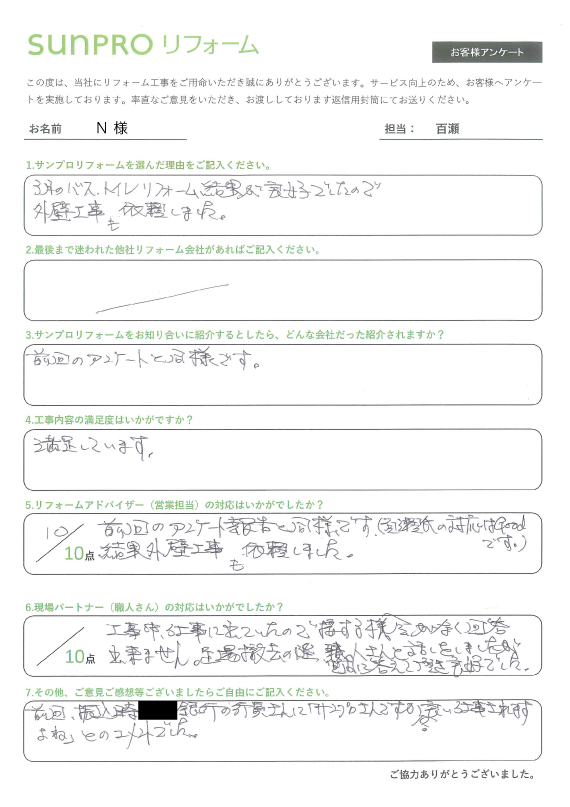 SUNPRO リフォーム
お客様アンケート
この度は、当社にリフォーム工事をご用命いただき誠にありがとうございます。サービス向上のため、お客様へアンケー
トを実施しております。率直なご意見をいただき、お渡ししております返信用封筒にてお送りください。
お名前 N 様 担当： 百瀬
1.サンプロリフォームを選んだ理由をご記入ください。
3月のバス、トイレリフォーム結果が良好でしたので
外壁工事も依頼しました。
2.最後まで迷われた他社リフォーム会社があればご記入ください。
3.サンプロリフォームをお知り合いに紹介するとしたら、どんな会社だった紹介されますか？
前回のアンケートと同様です。
4.工事内容の満足度はいかがですか？
満足しています。
5.リフォームアドバイザー（営業担当）の対応はいかがでしたか？
10/10点
前回のアンケート報告と同様です。(百瀬氏の対応はGood
です。)
結果外壁工事も依頼しました。
6.現場パートナー（職人さん）の対応はいかがでしたか？
/10点
工事中、仕事に出ていたので接する機会が少なく回答
出来ません。足場撤去の際、職人さんと
に答えて頂き良好でした。
7.その他、ご意見ご感想等ございましたらご自由にご記入ください。
前回、振込時 銀行の行員さんに「サンプロさんですか、良い工事されます
よね」とのコメントでした。
ご協力ありがとうございました。